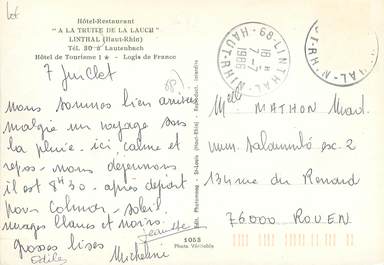 Hôtel-Restaurant
"A LA TRUITE DE LA LAUCH"
LINTHAL (Haut-Rhin)
Tél. 30 à Lautenbach
Hôtel de Tourisme 1 ★ - Logis de France
7 Juillet
Nous sommes bien arrivées
malgré un voyage sous
la pluie. ici, calme et
repos. nous déjeunons
il est 8H30. après départ
pour Colmar. soleil
nuages blancs et noirs.
grosses bises
Jeanette
Odile Micheline
1053
Photo Véritable
68 - LINTHAL
7-7
1986
HAUT-RHIN
Melle MATHON Mad.
imm. Salammbô esc. 2
134 rue du Renard
76000 ROUEN